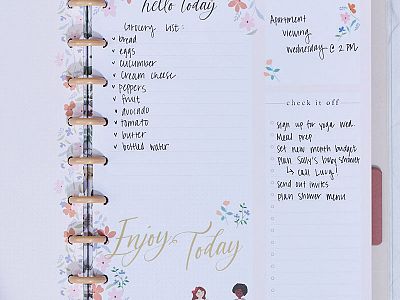 hello today
Grocery List:
bread
eggs
cucumber
cream cheese
peppers
fruit
avocado
tomato
butter
bottled water
Enjoy Today
Apartment
viewing
wednesday @ 2 PM
check it off
sign up for yoga wed.
Meal prep
set new month budget
plan Sally's baby shower
↳ call Lucy!
send out invites
plan shower menu